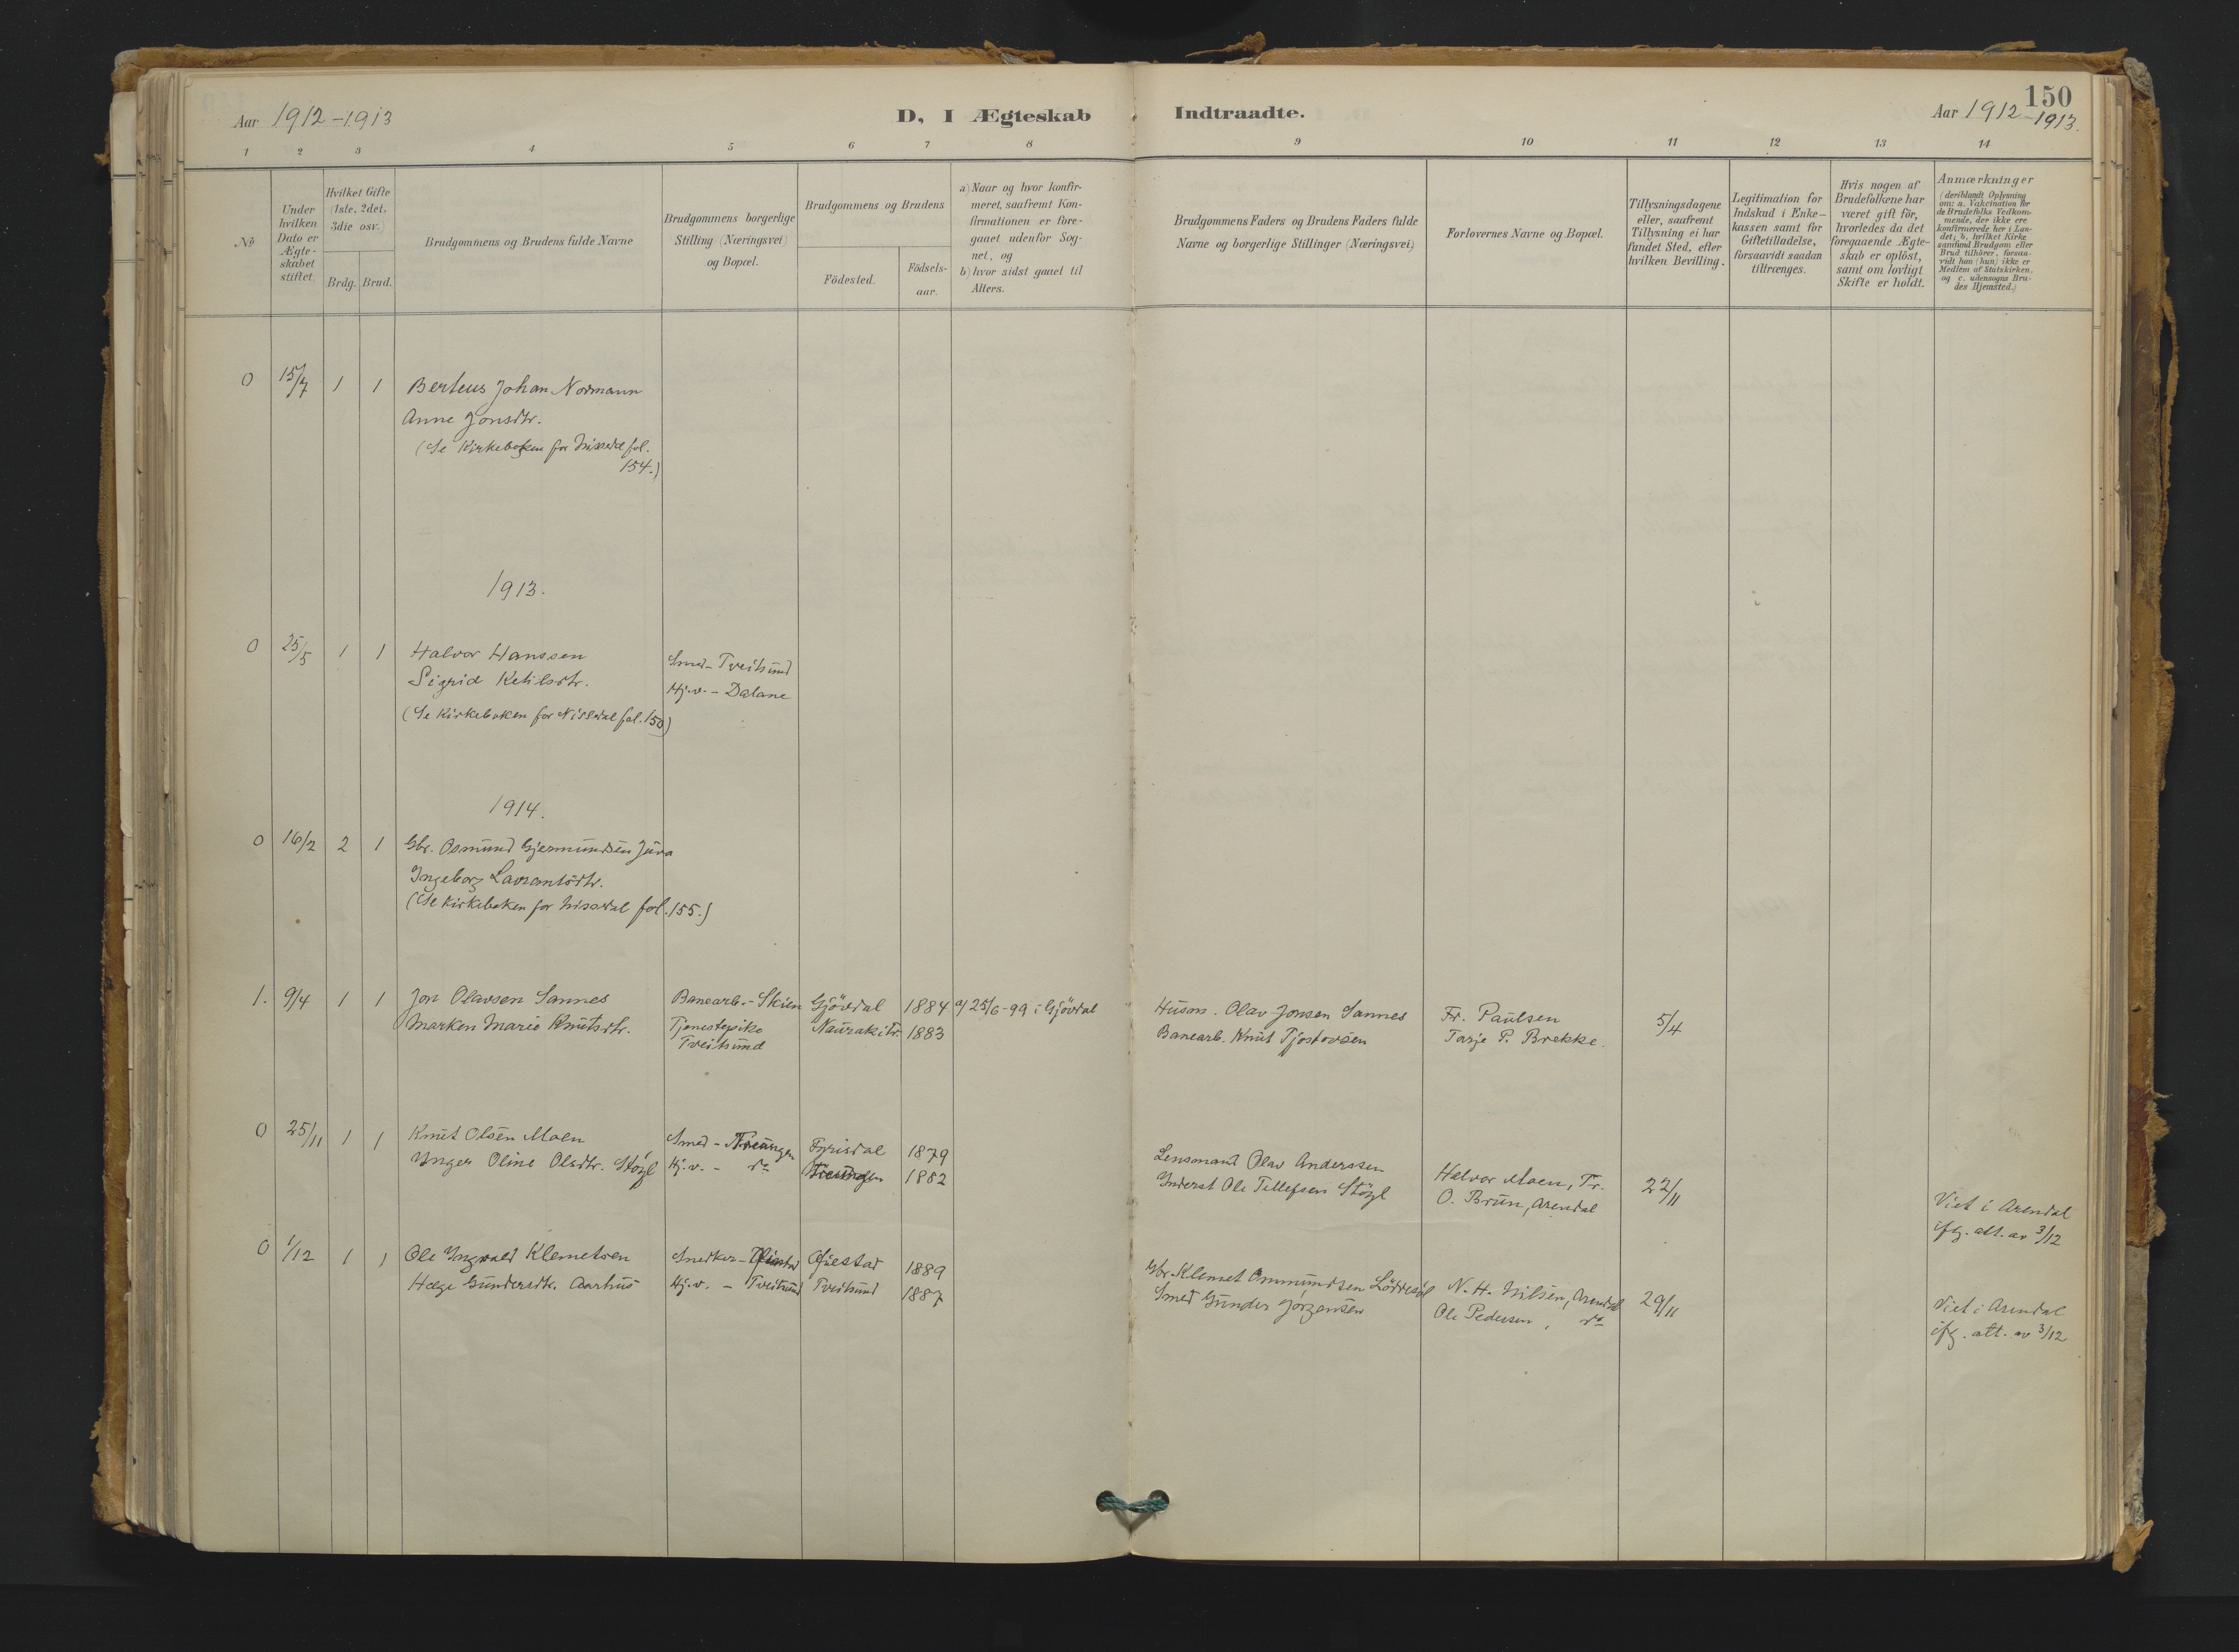 150
Aar 1912-1913
D, I Ægteskab Indtraadte.
Aar 1912-1913.
1 2 3 4 5 6 7 8 9 10 11 12 13 14
No
Under hvilken Dato er Ægteskabet stiftet.
Hvilket Gifte (1ste, 2det, 3die osv.)
Brdg. Brud.
Brudgommens og Brudens fulde Navne
Brudgommens borgerlige Stilling (Næringsvei) og Bopæl.
Brudgommens og Brudens
Födested.
Födsels-aar.
a) Naar og hvor konfir-
meret, saafremt Kon-
firmationen er fore-
gaaet udenfor Sog-
net, og
b) hvor sidst gaaet til
Alters.
Brudgommens Faders og Brudens Faders fulde
Navne og borgerlige Stillinger (Næringsvei)
Forlovernes Navne og Bopæl.
Tillysningsdagene
eller, saafremt
Tillysning ei har
fundet Sted, efter
hvilken Bevilling.
Legitimation for
Indskud i Enke-
kassen samt for
Giftetilladelse,
forsaavidt saadan
tiltrænges.
Hvis nogen af
Brudefolkene har
været gift för,
hvorledes da det
foregaaende Ægte-
skab er oplöst,
samt om lovligt
Skifte er holdt.
Anmærkninger
(deriblandt Oplysning
om: a. Vakcination for
de Brudefolks Vedkom-
mende, der ikke ere
konfirmerede her i Lan-
det; b. hvilket Kirke
samfund Brudgom eller
Brud tilhörer, forsaa-
vidt han (hun) ikke er
Medlem af Statskirken,
og c. udensogns Bru-
des Hjemsted.)
0 15/7 1 1 Berteus Johan Normann
Anne Jonsdtr.
(Se Kirkeboken for Nissedal fol.
154.)
1913.
0 25/5 1 1 Halvor Hanssen Smed - Tveitsund
Sigrid Ketilsdtr. Hj.v. - Dalane
(Se Kirkeboken for Nissedal fol. 150)
1914.
0 16/2 2 1 Gbr. Osmund Gjermundsen Juva
Ingeborg Lavrantsdtr.
(Se Kirkeboken for Nissedal fol. 155.)
1. 9/4 1 1 Jon Olavsen Sannes Banearb. - Skien Gjövdal 1884 a/ 25/6-99 i Gjövdal Husm. Olav Jonsen Sannes Fr. Paulsen 5/4
Marken Marie Knutsdtr. Tjenestepike Naurakitr. 1883 Banearb. Knut Tjostovsen Tarje P. Brekke.
Tveitsund
0 25/11 1 1 Knut Olsen Moen Smed - Treungen Fyrisdal 1879 Lensmand Olav Anderssen Halvor Moen, Tr. 22/11
Ynger Oline Olsdtr. Stögl Hj.v. - do Treungen 1882 Inderst Ole Tellefsen Stögl O. Brun, Arendal Viet i Arendal
ifg. att. av 3/12
0 1/12 1 1 Ole Yngvald Klemetsen Snedker - Øiestad Øiestad 1889 Gbr. Klemet Ommundsen Löddesöl N. H. Nilsen, Arendal 29/11
Hæge Gundersdtr. Aarhus Hj.v. - Tveitsund Tveitsund 1887 Smed Gunder Jörgensen Ole Pedersen, do Viet i Arendal
ifg. att. av 3/12